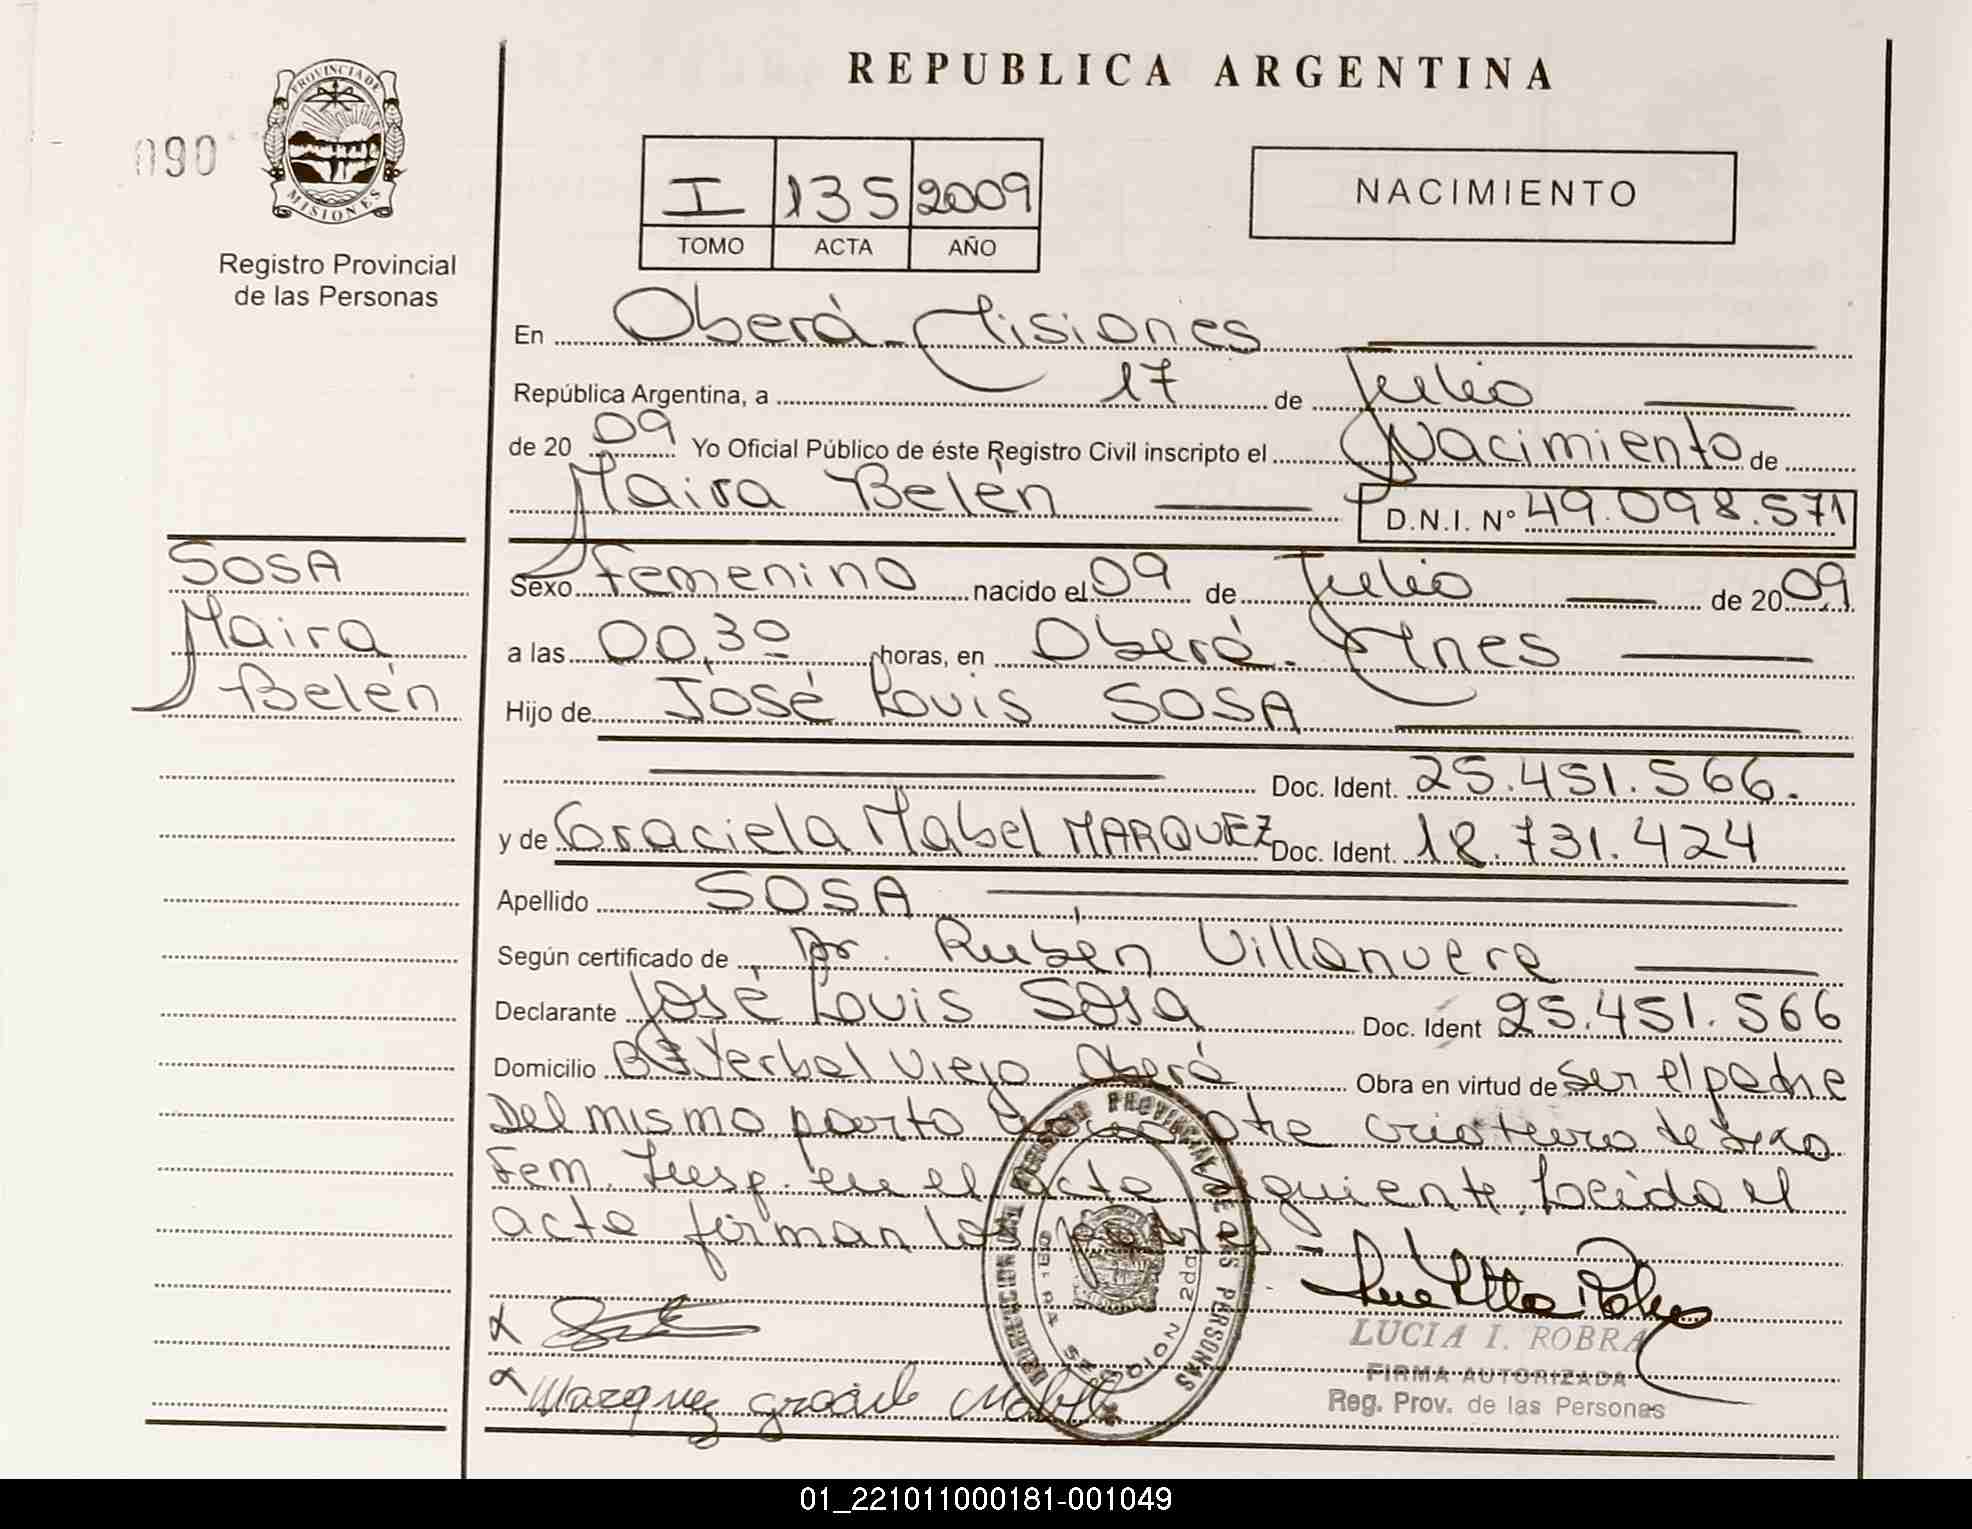 REPUBLICA ARGENTINA
090
PROVINCIA DE
MISIONES
Registro Provincial
de las Personas
I 135 2009
TOMO ACTA AÑO
NACIMIENTO
En Oberá - Misiones
República Argentina, a 17 de Julio
de 20 09 Yo Oficial Público de éste Registro Civil inscripto el Nacimiento de
Maira Belén D.N.I. Nº 49.098.571
SOSA
Maira
Belén
Sexo Femenino nacido el 09 de Julio de 20 09
a las 00,30 horas, en Oberá - Mnes
Hijo de José Louis SOSA
Doc. Ident. 25.451.566.
y de Graciela Mabel MARQUEZ Doc. Ident. 18.731.424
Apellido SOSA
Según certificado de Dr. Rubén Villanueva
Declarante José Louis Sosa Doc. Ident 25.451.566
Domicilio Bº Yerbal Viejo Oberá Obra en virtud de ser el padre
Del mismo parto otra criatura de sexo
Fem. Insp. en el acta siguiente. Leída el
acta firman los padres -
DIRECCION PROVINCIAL DE LAS PERSONAS
OBERA SECCION 2da
LUCIA I. ROBRA
FIRMA AUTORIZADA
Reg. Prov. de las Personas
Marquez graciela Mabel
01_221011000181-001049